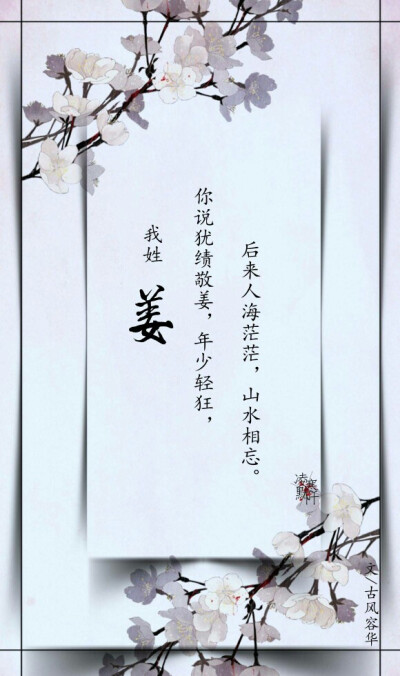 我姓
姜
你说犹绩敬姜，年少轻狂，
后来人海茫茫，山水相忘。
文/古风容华